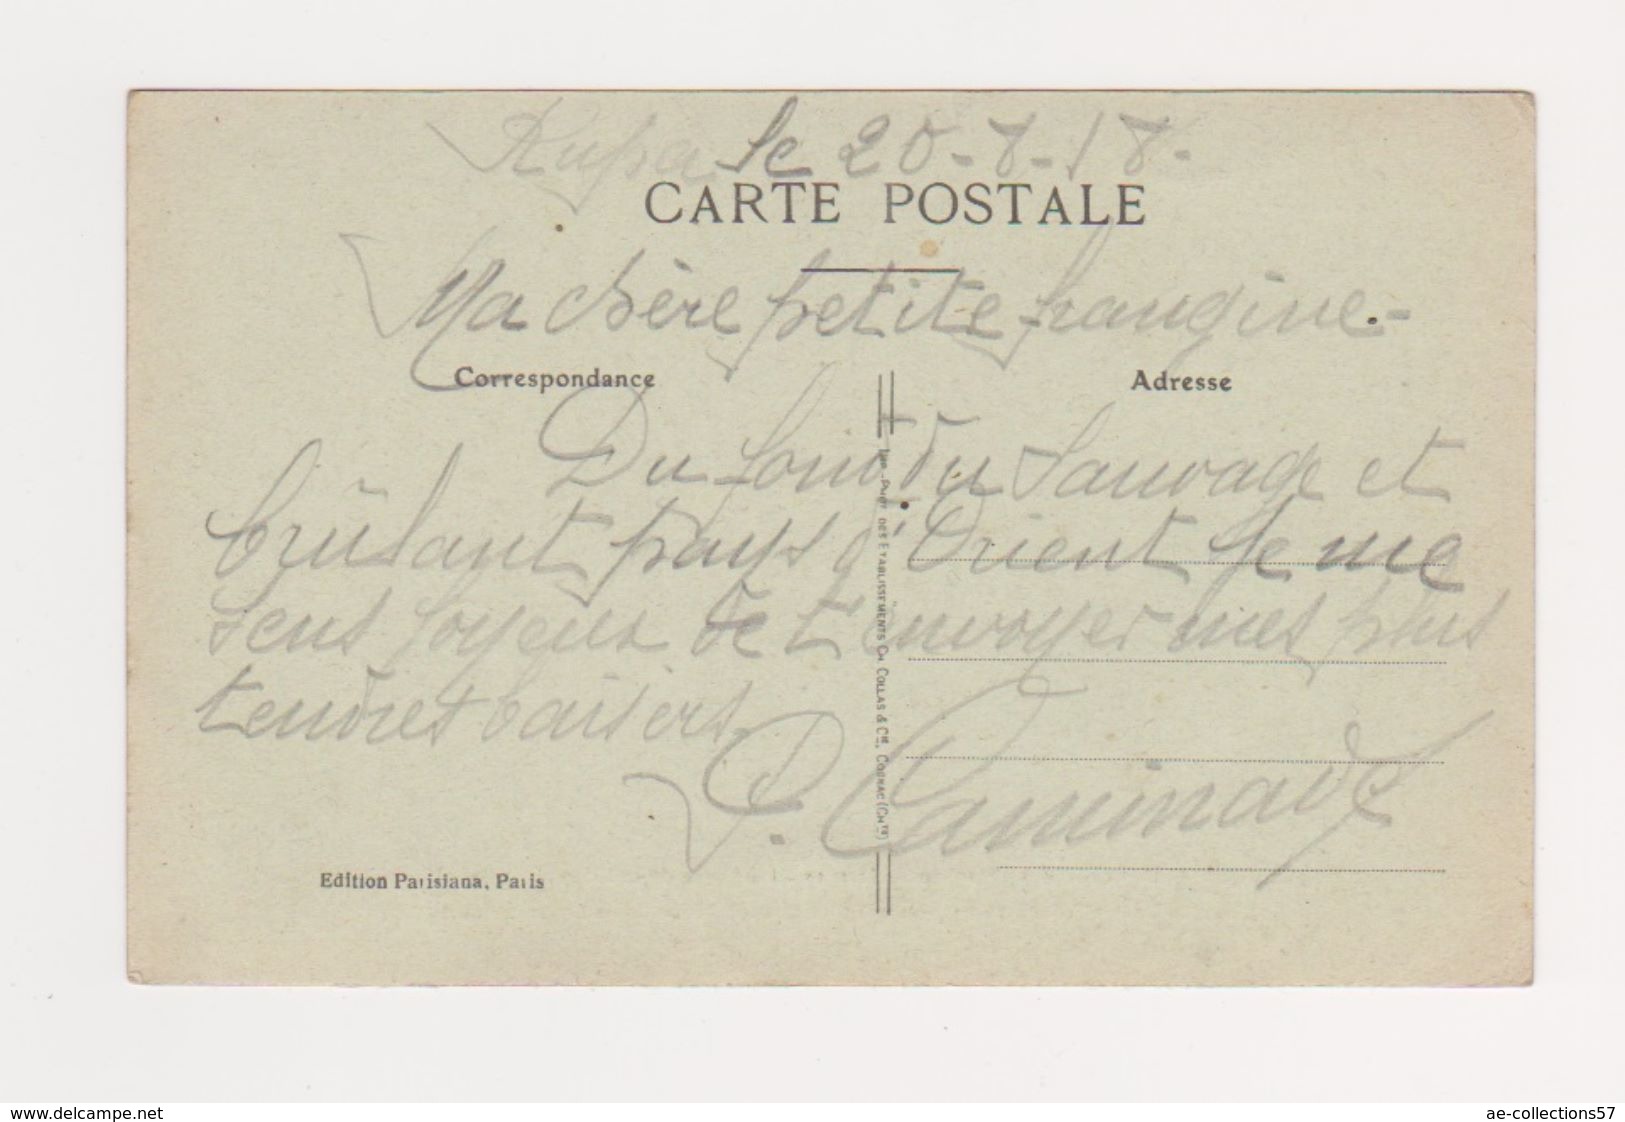 Rupa le 20-8-18-
CARTE POSTALE
Ma chère petite frangine-
Correspondance
Adresse
Du fond du sauvage et
brûlant pays d'Orient je me
sens joyeux de t'envoyer mes plus
tendres baisers.
P. Caminade
Imp.-Phot. des Etablissements Ch. Collas & Cie, Cognac (Chte)
Edition Parisiana, Paris
www.delcampe.net
ae-collections57